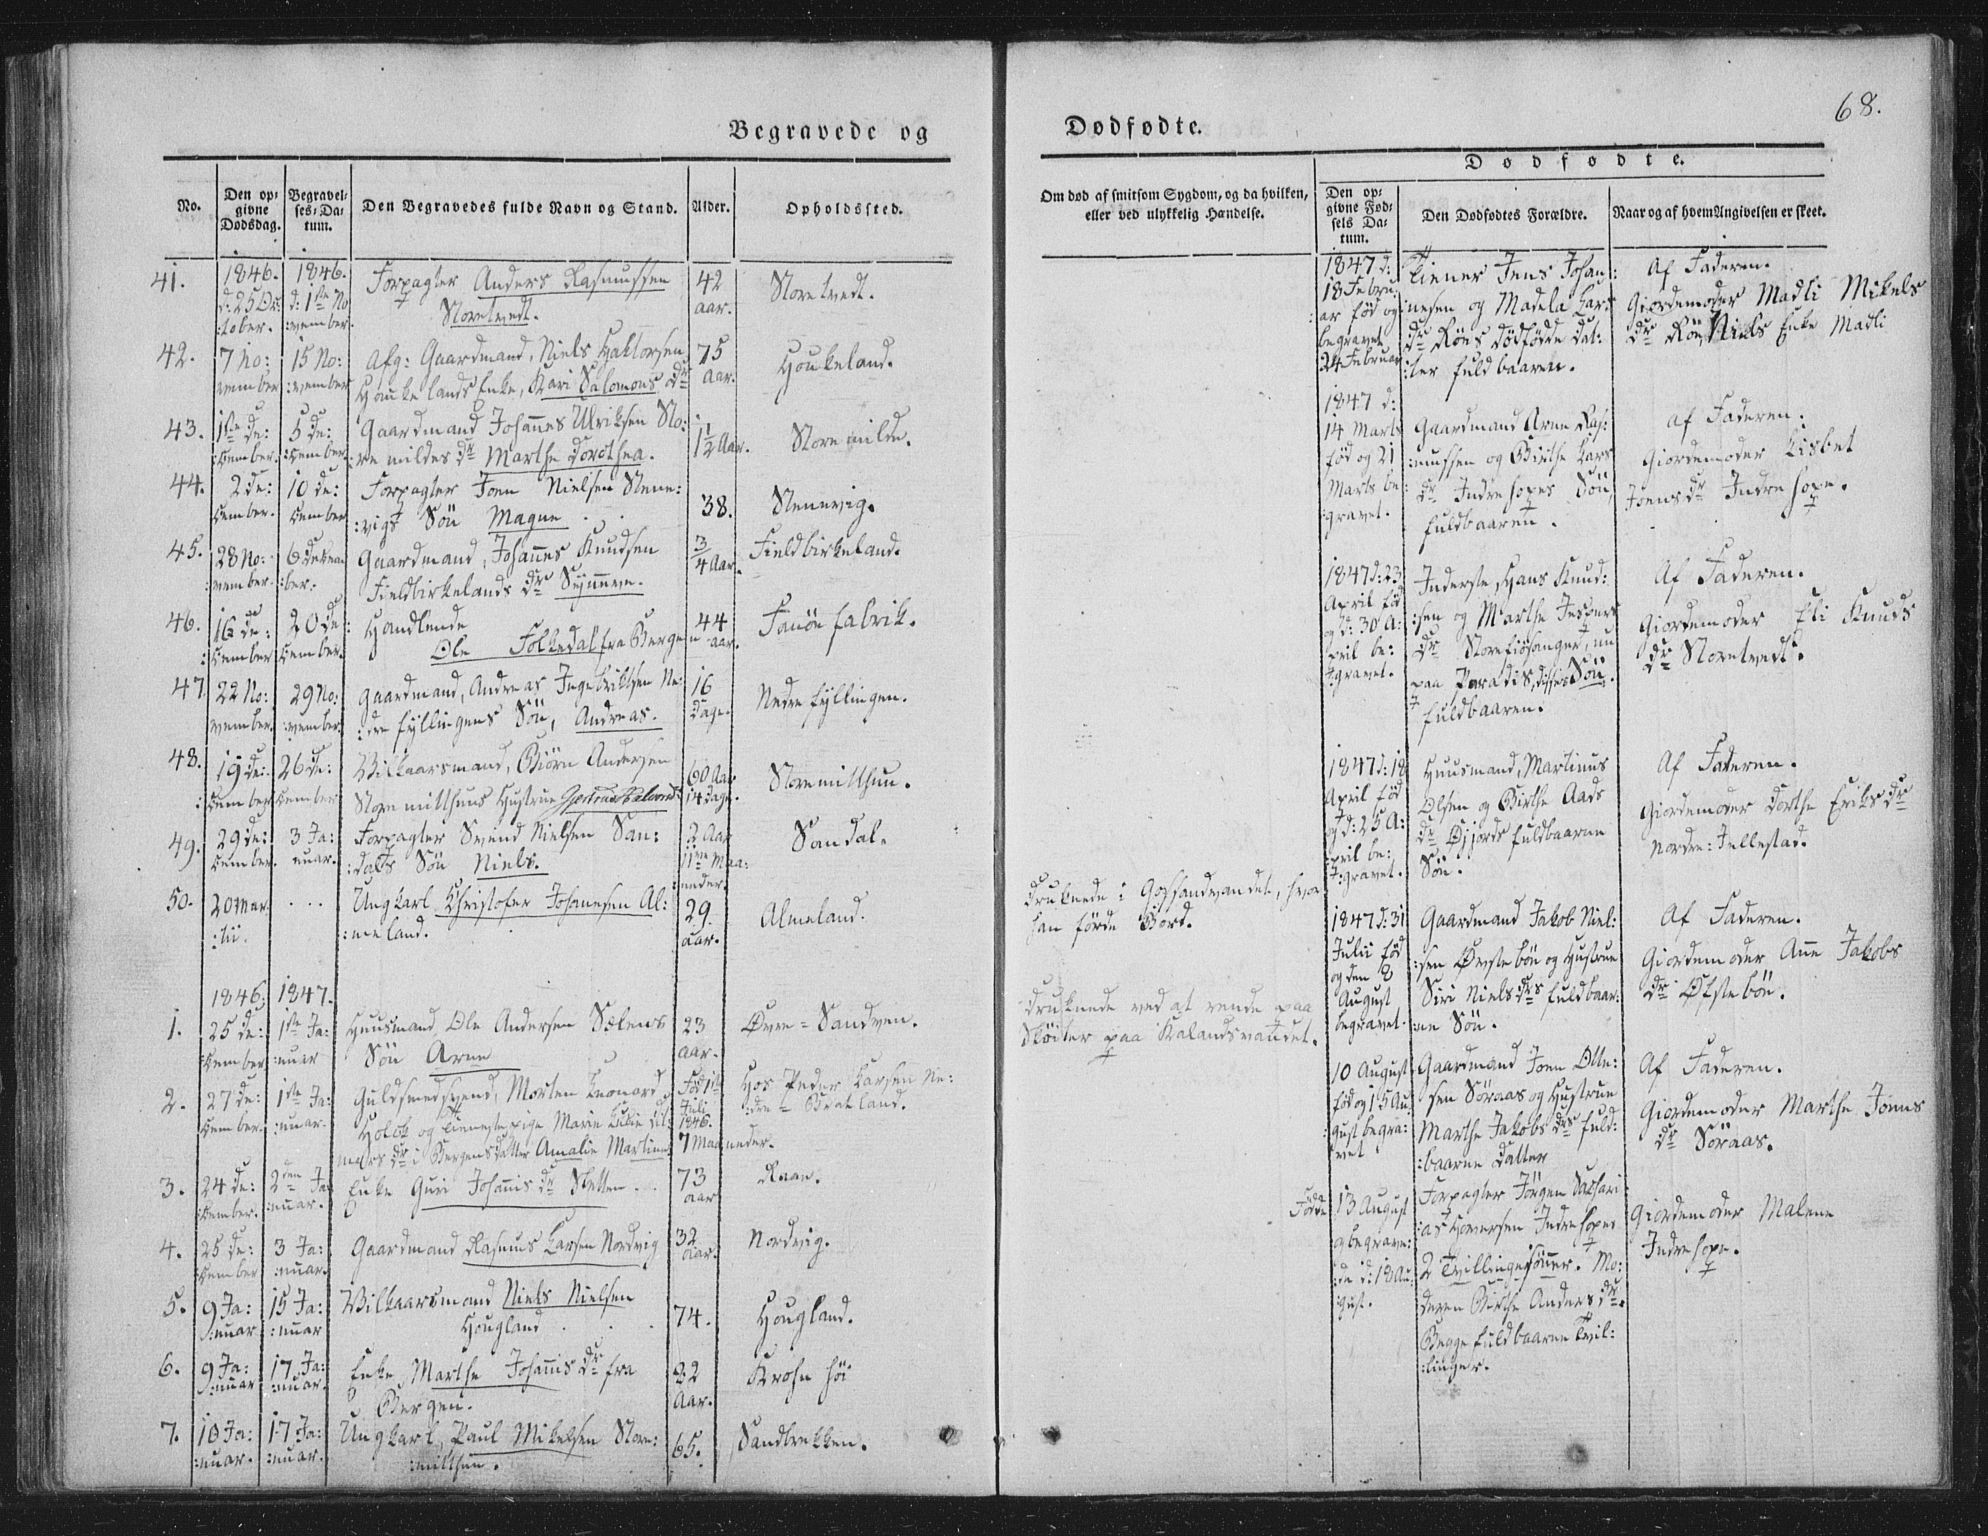 68.
Begravede og
No.
Den op-
givne
Dødsdag.
Begravel-
ses-Da-
tum.
Den Begravedes fulde Navn og Stand.
Alder.
Opholdssted.
41.
1846.
d. 25 Oc:
:tober.
1846.
d: 1ste No
:vember.
Forpagter Anders Rasmussen
Storetvedt.
42
aar.
Storetvedt.
42.
7 No:
vember
15 No:
:vember
Afg: Gaardmand, Niels Haktorsen
Houkelands Enke, Kari Salomons dr
75
aar.
Houkeland.
43.
1ste De:
:cember.
5 De:
:cember.
Gaardmand Johannes Ulriksen Sto:
:re mildes dr Marthe Dorothea.
1½ Aar.
Store milde.
44.
2 De:
cember.
10 De:
cember
Forpagter Joen Nielsen Stene:
:vigs Søn Magne
38.
Stenevig.
45.
28 No:
:vember.
6 Decem
:ber.
Gaardmand, Johannes Knudsen
Fieldbirkelands dr Synneve.
3/4 Aar.
Fieldbirkeland.
46.
16 de De:
:cember
20 De:
cember.
Handlende
Ole Folkedal fra Bergen
44
aar.
Fanøe fabrik.
47
22 No:
vember.
29 No:
:vember.
Gaardmand, Andreas Ingebriktsen Ne:
:dre fyllingens Søn, Andreas.
16
Dage.
Nedre fyllingen.
48.
19 De:
:cember
26 De:
cember
Vilkaarsmand, Biørn Andersen
Store milthuns Hustrue
60 Aar
14 Dage.
Store milthun.
49.
29 De:
cember.
3 Ja:
nuar.
Forpagter Svend Nielsen San:
:dals Søn Niels.
2 Aar
11ve Maa:
:neder.
Sandal.
50.
20 Mar
:tii.
. . .
Ungkarl Christofer Johannesen Al:
:meland.
29.
aar.
Almeland.
1846.
1847.
1.
25 De:
:cember
1ste Ja:
:nuar
Huusmand Ole Andersen Sælens
Søn Arne
23
aar.
Øvre = Sandven.
2.
27 De:
cember.
1ste Ja:
:nuar.
Guldsmedsvend, Morten Leonard
Holck og tienestepige Marie Lucie Lil
mars dr i Bergens Datter Amalie Martine
Fød 1ste
Juli
1846.
7 Maaneder.
Hos Peder Larsen Ne:
:dre = Bratland.
3.
24 De:
:cember.
2den Ja
:nuar.
Enke Guri Johannis dr Sletten
73
aar
Raae.
4.
25 De:
:cember
3 Ja:
:nuar.
Gaardmand Rasmus Larsen Nordvig
32
aar.
Nordvig.
5.
9 Ja:
:nuar
15 Ja:
:nuar
Vilkaarsmand Niels Nielsen
Hougland
74.
Hougland.
6.
9 Ja:
:nuar
17 Ja:
:nuar.
Enke, Marthe Johannis dr fra
Bergen.
82
Aar.
Krohn høi
7.
10 Ja:
:nuar.
17 Ja:
:nuar.
Ungkarl, Paul Mikelsen Store:
:milthun.
65.
Sandbrekken.
Dødfødte.
Om død af smitsom Sygdom, og da hvilken,
eller ved ulykkelig Hændelse.
Druknede i Gossandvandet, hvor
han førde Bord.
Druknede ved at rende paa
Skøiter paa Kalandsvandet.
Dødfødte.
Den op-
givne Fød-
sels Da-
tum.
Den Dødfødtes Forældre.
Naar og af hvem Angivelsen er skeet.
1847 d:
18 Febru:
:ar fød og
begravet
24 Februar
Tiener Jens Johan:
:nesen og Madela Lars
dr Røns dødfødde Dat:
:ter fuldbaaren.
Af Faderen.
Giordemoder Madli Mikels
dr Røn, Niels Enke Madli
1847 d:
14 Marts
fød og 21
Marts be:
gravet.
Gaardmand Arne Ras:
:mussen og Birthe Lars
dr Indre hopes Søn,
fuldbaaren.
Af Faderen.
Giordemoder Lisbet
Joens dr Indre hope.
1847 d: 23
April fød
og d: 30 A:
:pril be:
:gravet.
Inderste, Hans Knud:
:sen og Marthe Jespers
dr Storefiøsanger, nu
paa Paradis, disses Søn.
fuldbaaren.
Af Faderen.
Giordemoder Eli Knuds
dr Storetvedt.
1847 d: 18
April fød
og d: 25 A:
:pril be:
:gravet.
Huusmand, Martinus
Olsen og Birthe Aads
dr Øjjords fuldbaarne
Søn.
Af Faderen.
Giordemoder Dorthe Eriks dr
Nordre = Jellestad.
1847 d: 31
Julii fød
og den 8
August
begravet.
Gaardmand Jakob Niel:
:sen Øvstebøn og Hustrue
Siri Niels drs fuldbaar:
:ne Søn.
Af Faderen.
Giordemoder Anne Jakobs
dr Øfstebøn.
10 August
fød og 15 Au:
gust begra:
:vet
Gaardmand Joen Olle:
sen Søraas og Hustrue
Marthe Jakobs drs fuld:
:baarne Datter
Af Faderen.
Giordemoder Marthe Jonns
dr Søraas.
Fødde
13 August
og begrave:
:de d: 18 Au:
:gust.
Forpagter Jørgen Sachari:
:as Iversen Indre hopes
2 Tvillingesønner. Mo:
deren Birthe Anders dr.
Begge fuldbaarne Tvil:
:linger.
Giordemoder Malene
Indre hope.